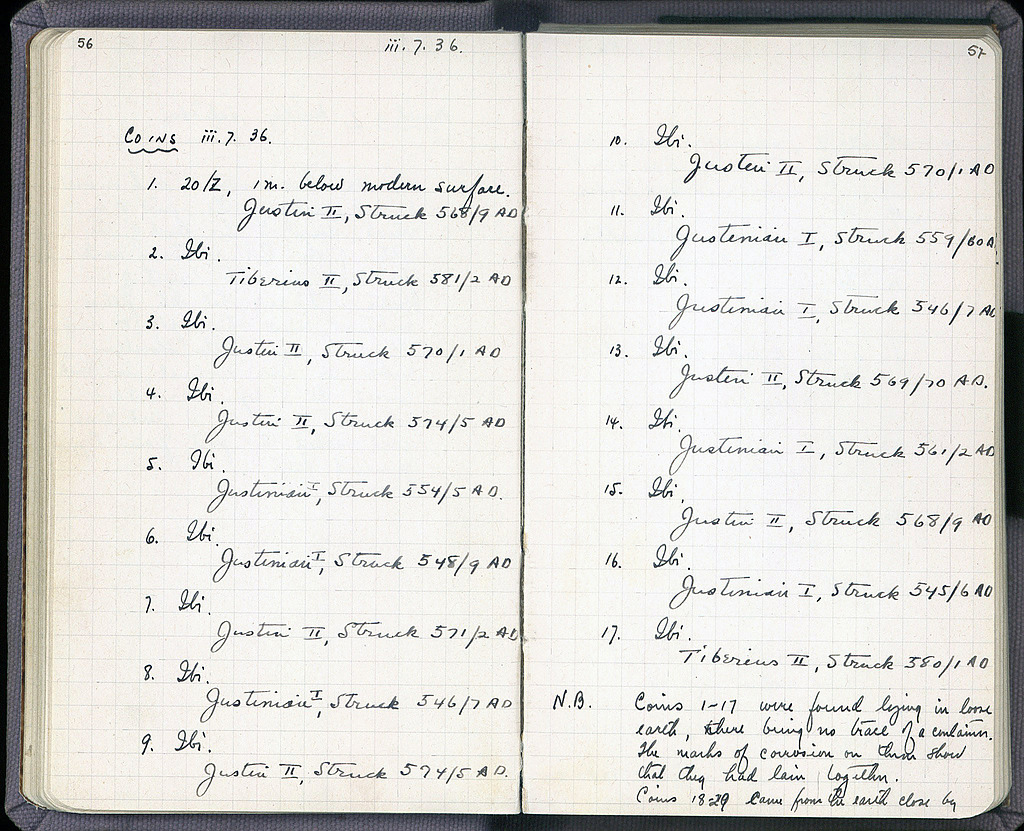 56
iii. 7. 36.
COINS iii. 7. 36.
1. 20/Z, 1m. below modern surface.
Justin II, Struck 568/9 AD
2. Ibi.
Tiberius II, Struck 581/2 AD
3. Ibi.
Justin II, Struck 570/1 AD
4. Ibi.
Justin II, Struck 574/5 AD
5. Ibi.
Justinian I, Struck 554/5 AD.
6. Ibi.
Justinian I, Struck 548/9 AD
7. Ibi.
Justin II, Struck 571/2 AD
8. Ibi.
Justinian I, Struck 546/7 AD
9. Ibi.
Justin II, Struck 574/5 AD.
57
10. Ibi.
Justin II, Struck 570/1 AD
11. Ibi.
Justinian I, Struck 559/60 A
12. Ibi.
Justinian I, Struck 546/7 AD
13. Ibi.
Justin II, Struck 569/70 AD.
14. Ibi.
Justinian I, Struck 561/2 AD
15. Ibi.
Justin II, Struck 568/9 AD
16. Ibi.
Justinian I, Struck 545/6 AD
17. Ibi.
Tiberius II, Struck 580/1 AD
N.B. Coins 1-17 were found lying in loose
earth, there being no trace of a container.
The marks of corrosion on them show
that they had lain together.
Coins 18-29 came from the earth close by